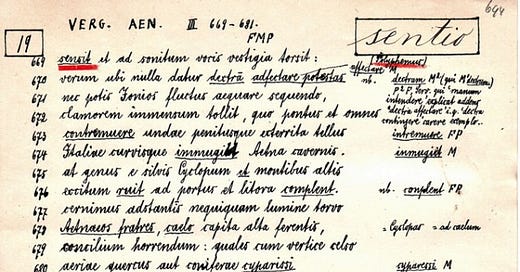 694
VERG. AEN. III 669-681.
19
FMP
sentio
669 sensit et ad sonitum vocis vestigia torsit: (Polyphemus)
670 verum ubi nulla datur dectrā adfectare potestas adfectare M nb. dectram M² (qui M¹ dectera)
671 nec potis Ionios fluctus aequare sequendo, P² F, Serv. qui "manum
672 clamorem immensum tollit, quo pontus et omnes intendere" explicat addens
673 contremuere undae penitusque exterrita tellus intremuere FP
674 Italiae curvisque immugiit Aetna cavernis. inmugiet M
675 at genus e silvis Cyclopum et montibus altis
676 excitum ruit ad portus et litora complent. nb. conplent FP
677 cernimus adstantis nequiquam lumine torvo
678 Aetnaeos fratres, caelo capita alta ferentis, = Cyclopas = ad caelum
679 concilium horrendum: quales cum vertice celso
680 aeriae quercus aut coniferae cyparissi cyparessi M